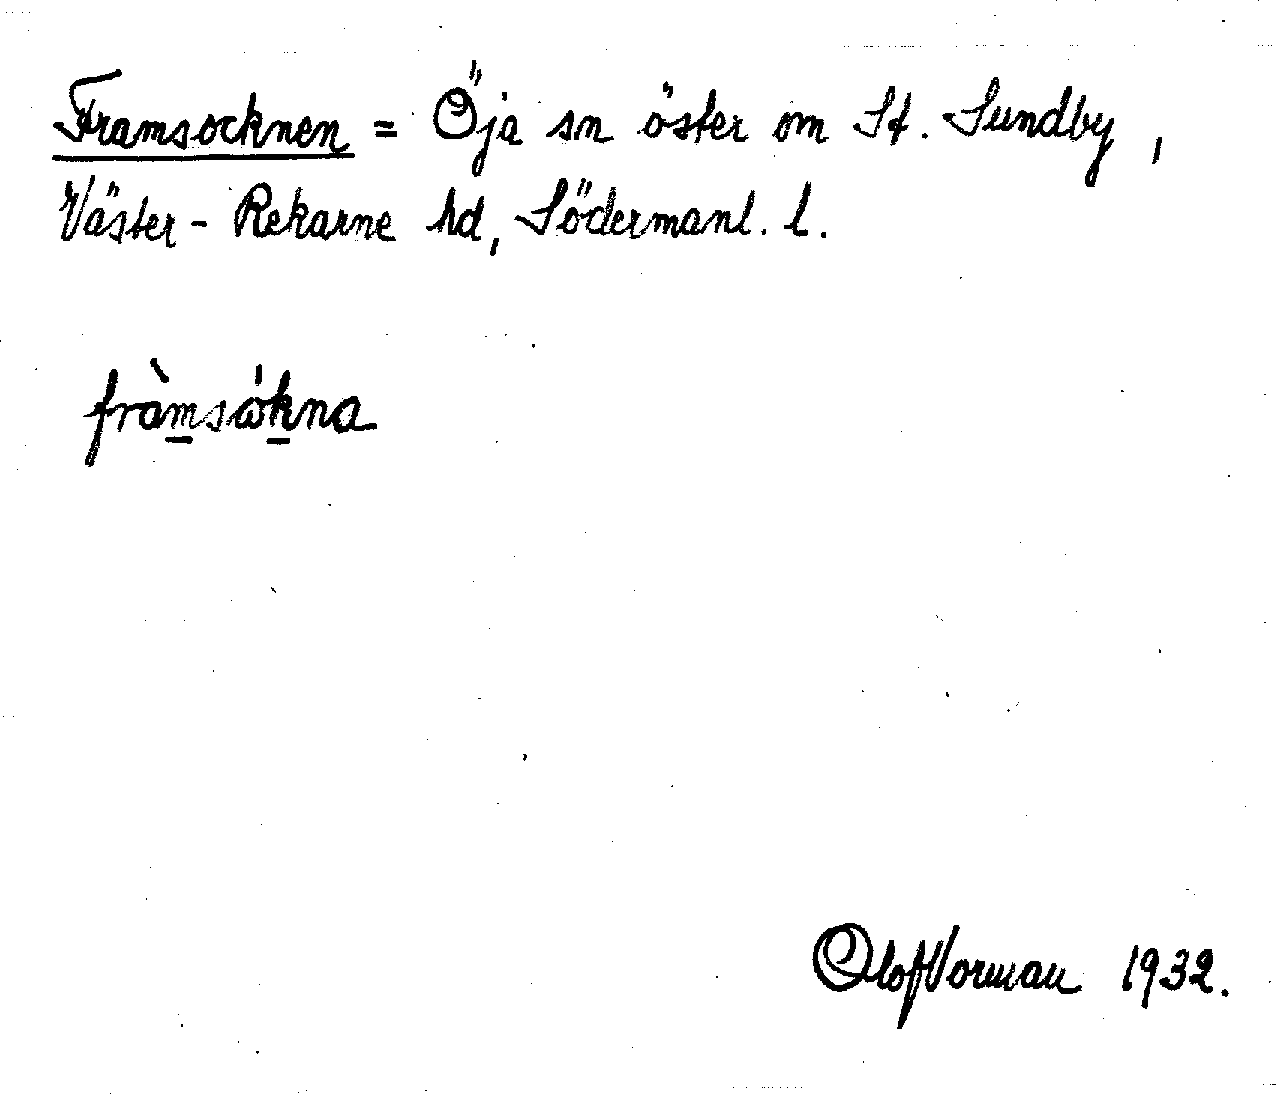 Framsocknen = Öja sn öster om St. Sundby,
Väster-Rekarne hd, Södermanl. l.
fràmsòkna
Olof Vorman 1932.